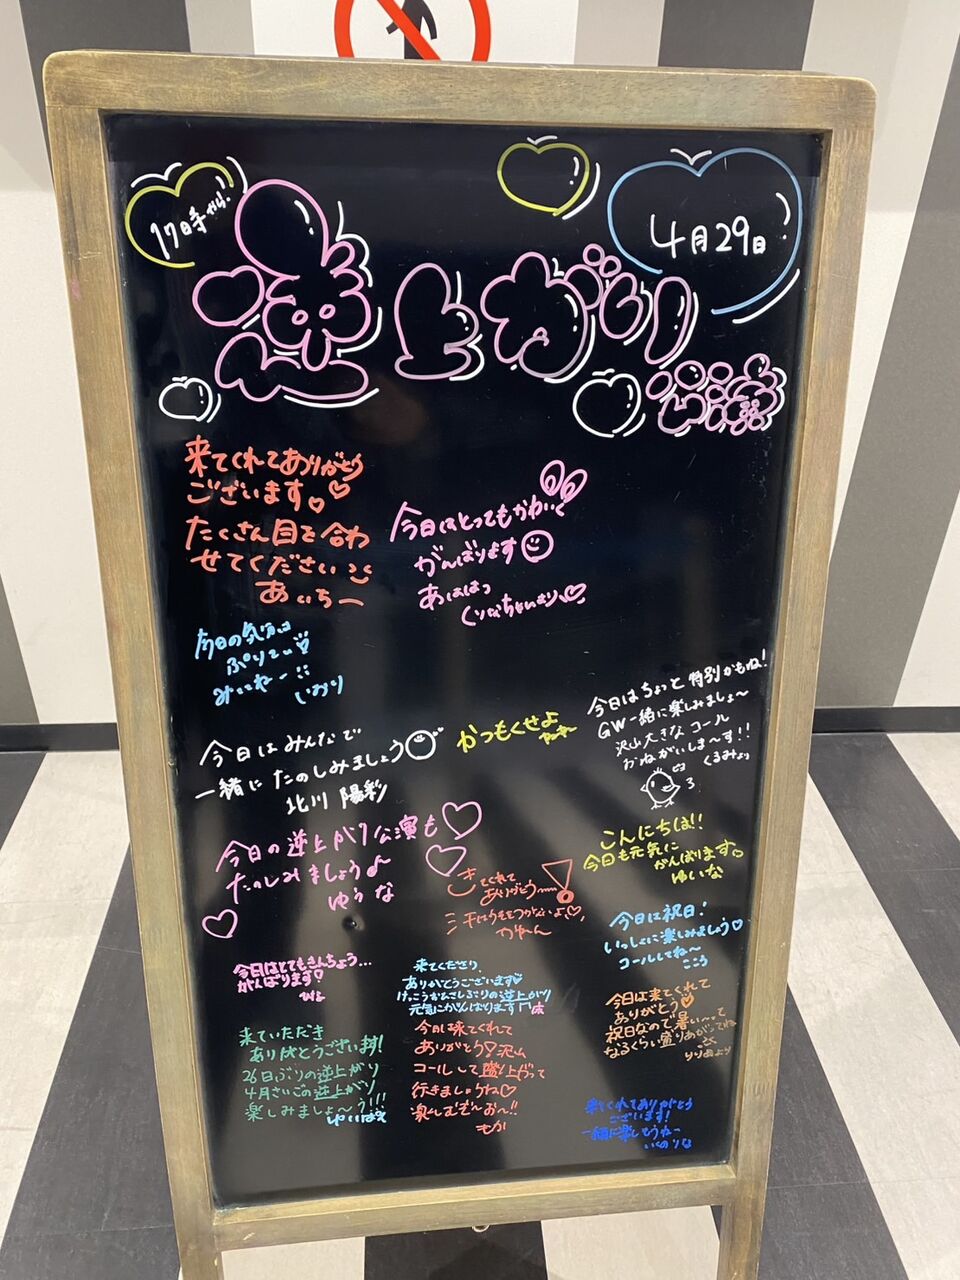 17時から!
4月29日
逆上がり
公演
来てくれてありがとう
ございます♡♡
たくさん目を合わ
せてください
あいちー
今日はとってもかわいく
がんばります
あははっ
今日の気分は
みいねー
いおり
かつもくせよ
今日はちょっと特別かもね!
GW一緒に楽しみましょ〜
沢山大きなコール
おねがいしま〜す!!
くるみより
今日はみんなで
一緒にたのしみましょう
北川 陽彩
今日の逆上がり公演も
たのしみましょう♪
ゆうな
きてくれて
ありがとう
こんにちは!!
今日も元気に
がんばります
ゆいな
今日は祝日!
いっしょに楽しみましょう♡
コールしてね〜
こころ
今日はとてもきんちょう...
がんばります!
来てくださり、
ありがとうございます♡
けっこうおひさしぶりの逆上がり
元気にがんばります
来ていただき
ありがとうございます!
26日ぶりの逆上がり
4月さいごの逆上がり
楽しみましょ〜う!!!
今日は来てくれて
ありがとう!沢山
コールして盛り上がって
行きましょうね♡
楽しむぞ〜お〜!!
もか
今日は来てくれて
ありがとう♡
祝日なので暑い〜って
なるくらい盛りあがってね
りりあより
来てくれてありがとう
ございます!
一緒に楽しもうね〜
いのりな